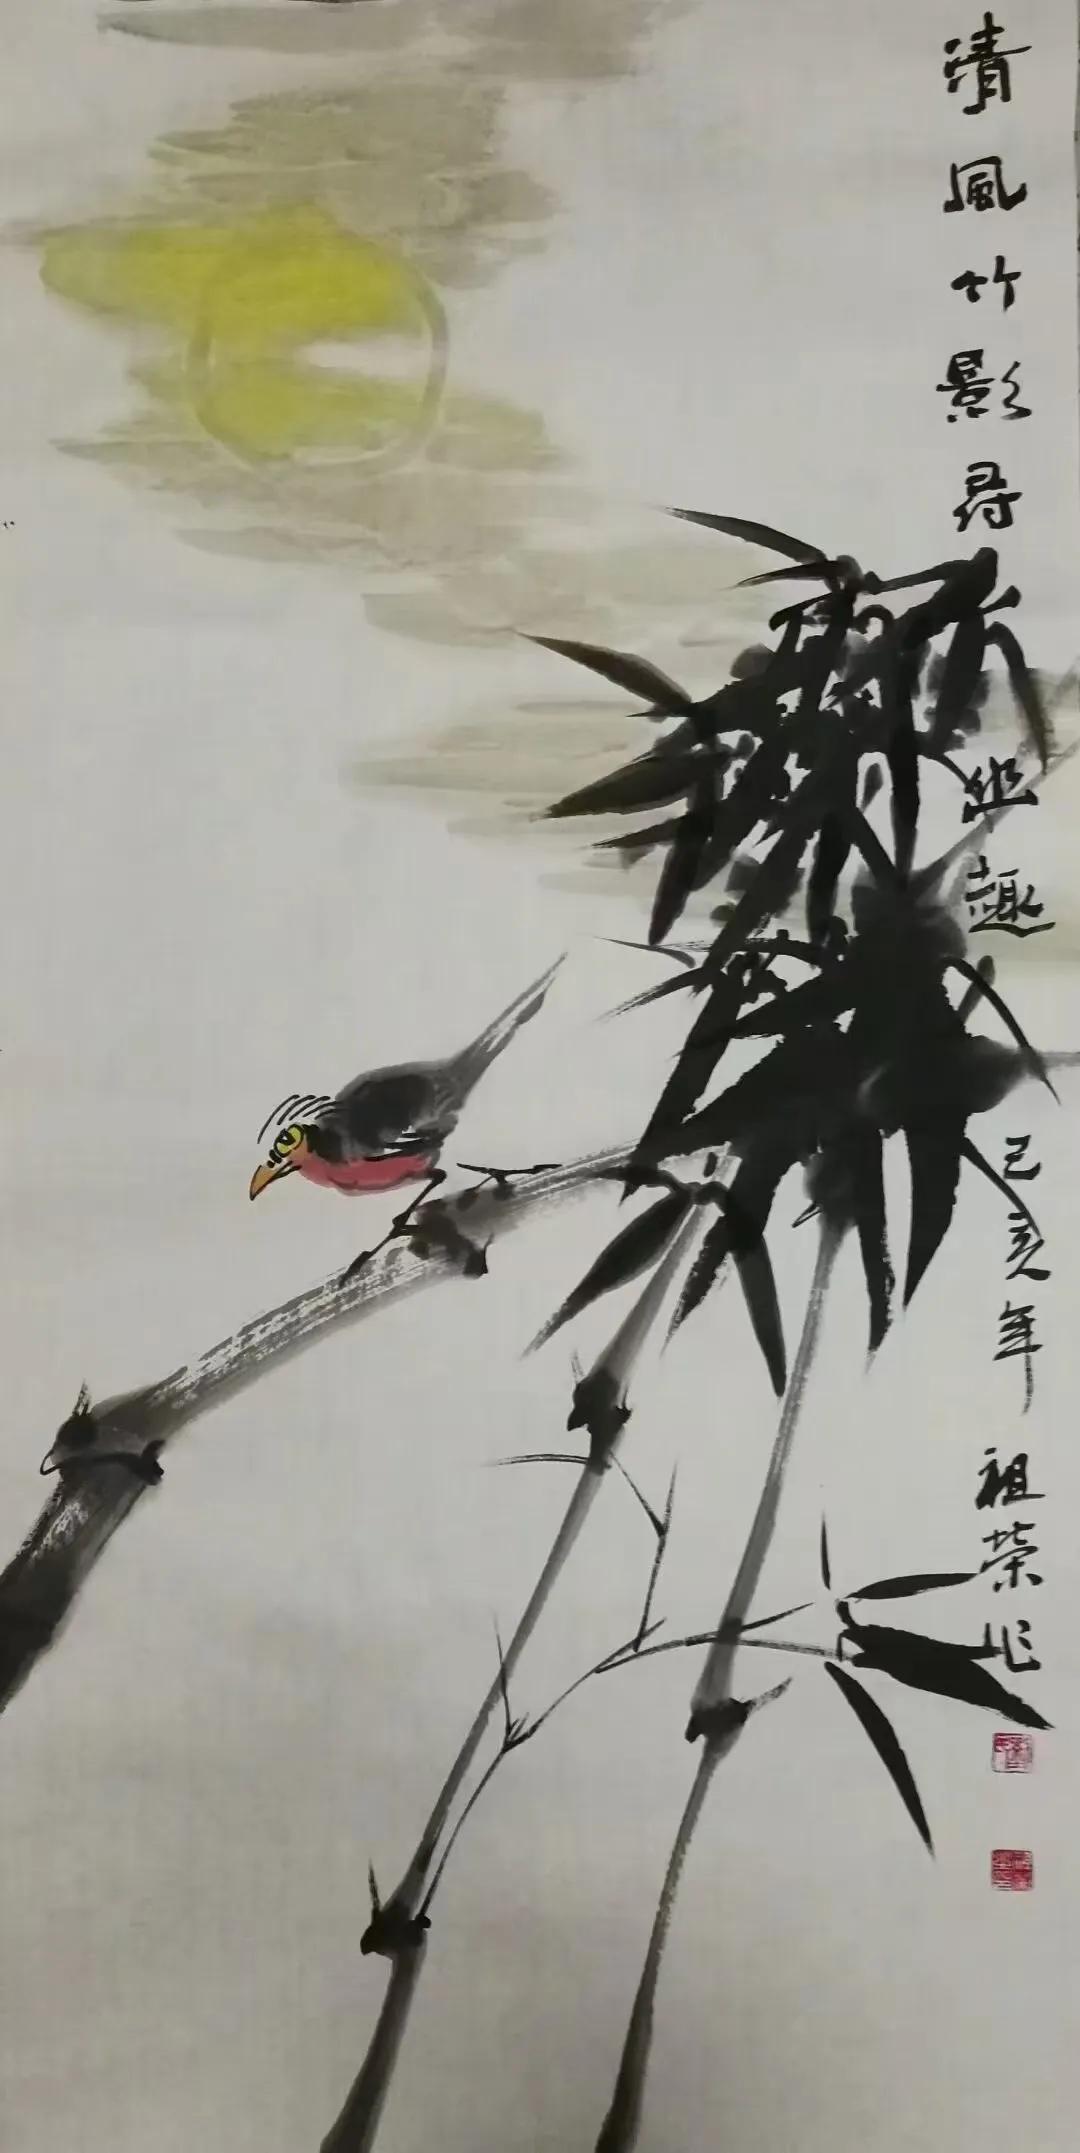 清風竹影尋幽趣
己亥年
祖荣作